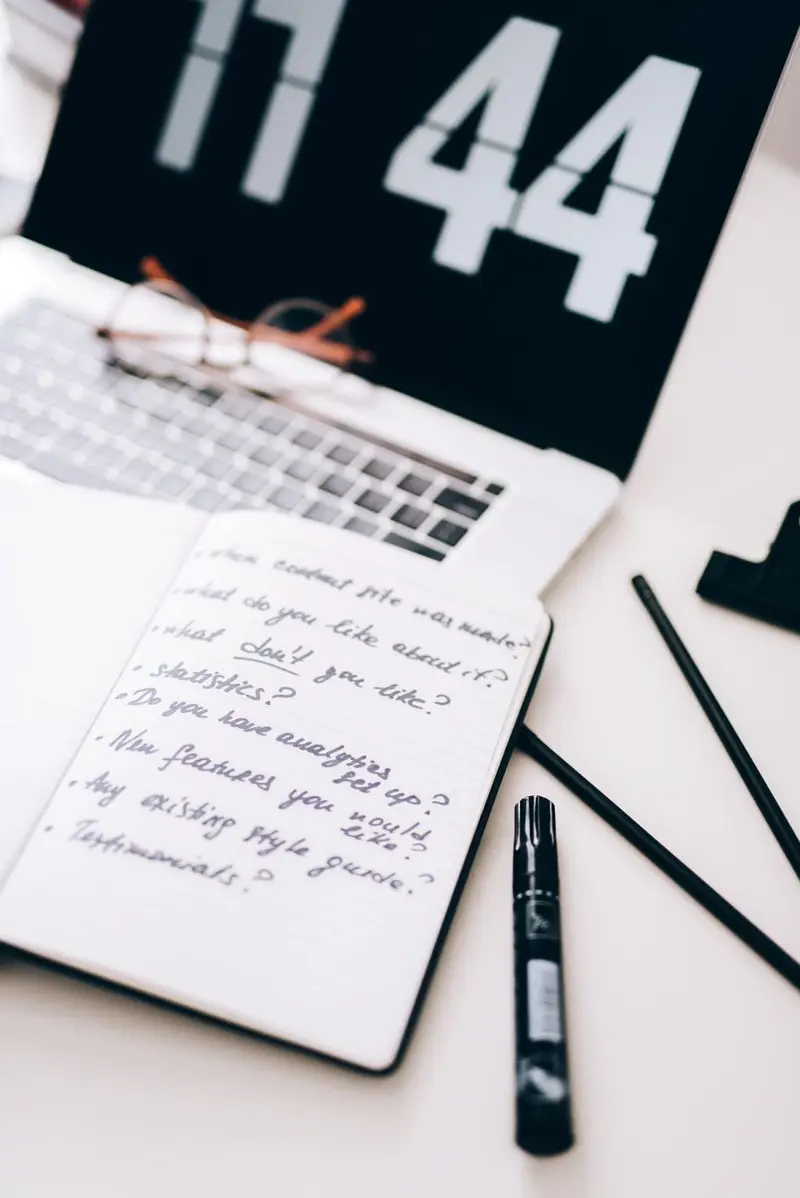 11 44
• when contact site was made?
• what do you like about it?
• what don't you like?
• statistics?
• Do you have analytics
set up?
• New features you would
like?
• Any existing style guide?
• Testimonials?